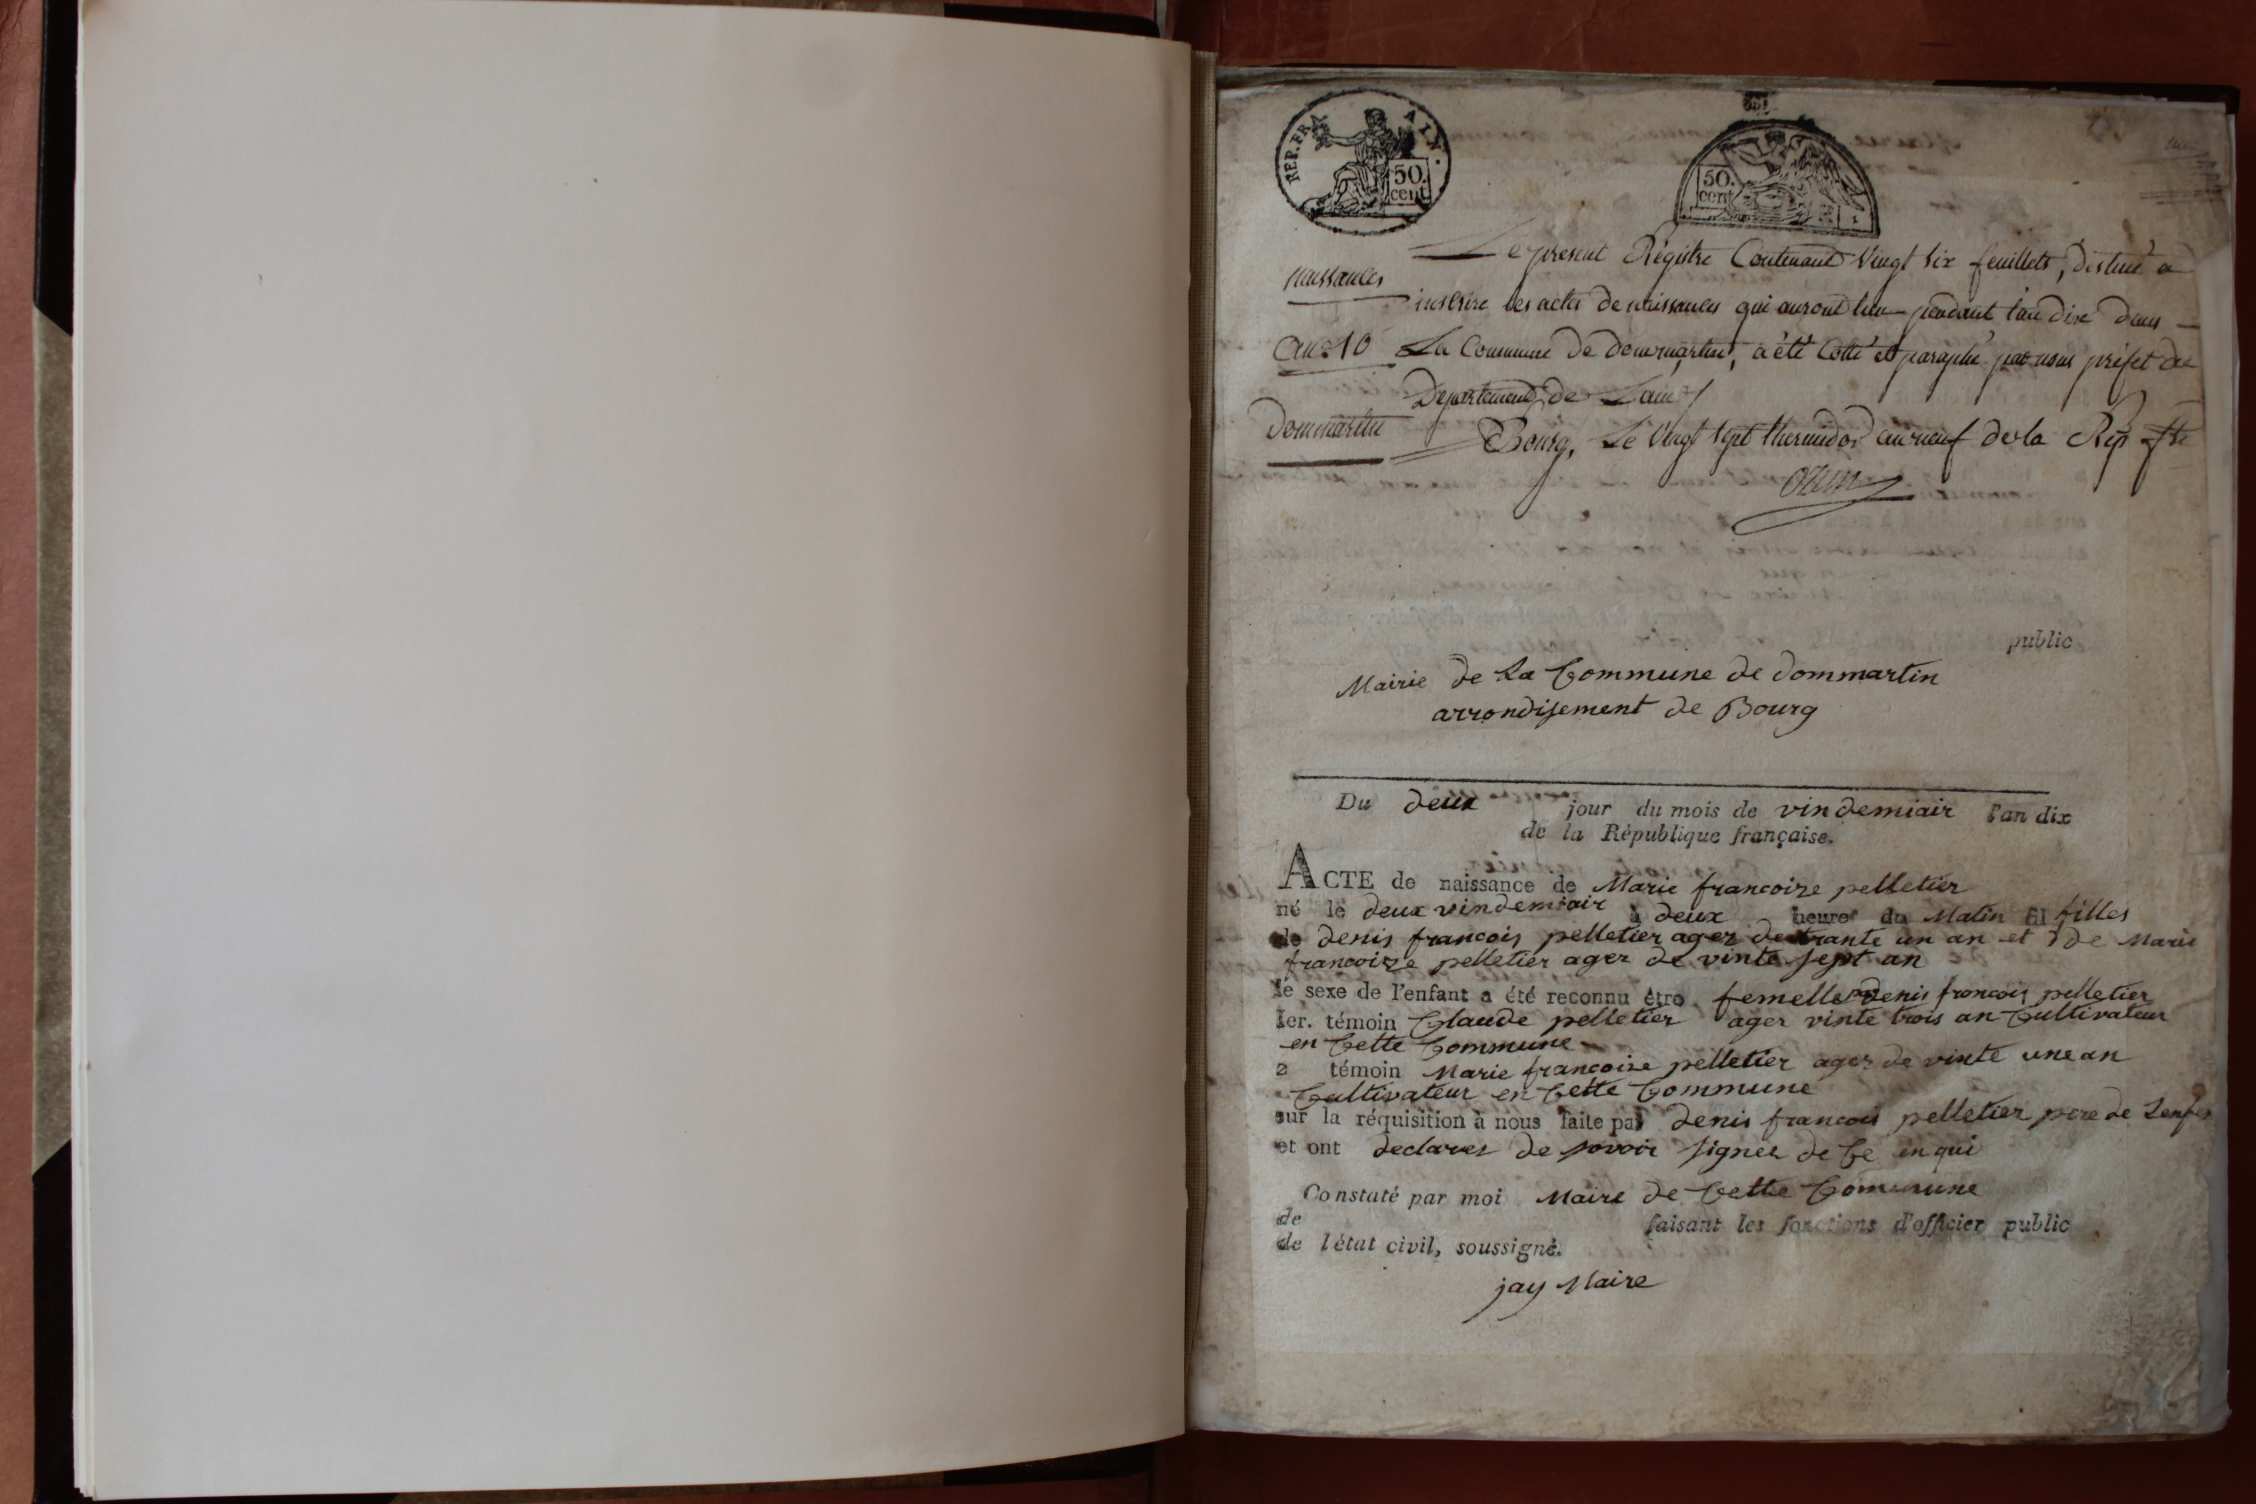 REP. FRA. AIN.
50. cent
50. cent
Le present Régistre Contenant Vingt six feuillets, destiné a
naissances
inscrire les actes de naissances qui auront lieu pendant l'an dix dans
An 10 La Commune de dommartin, a été Cotté et paraphé par nous préfet du
Departement de Lain
dommartin
Bourg, Le Vingt sept thermidor an neuf de la Rép fse
public
Mairie de La Commune de dommartin
arrondisement de Bourg
Du deux jour du mois de vindemiair l'an dix
de la République française.
ACTE de naissance de Marie francoize pelletier
né le deux vindemiair à deux heure du Matin fil filles
de denis francois pelletier ager de trante un an et de Marie
francoize pelletier ager de vinte sept an
le sexe de l'enfant a été reconnu être femelle denis francois pelletier
Ier. témoin Claude pelletier ager vinte trois an Cultivateur
en Cette Commune
2 témoin Marie francoise pelletier ager de vinte une an
Cultivateur en Cette Commune
sur la réquisition à nous faite par denis francois pelletier pere de
et ont declarer de savoir signer de Ce en qui
Constaté par moi Maire de Cette Commune
de faisant les fonctions d'officier public
de l'état civil, soussigné.
jay Maire